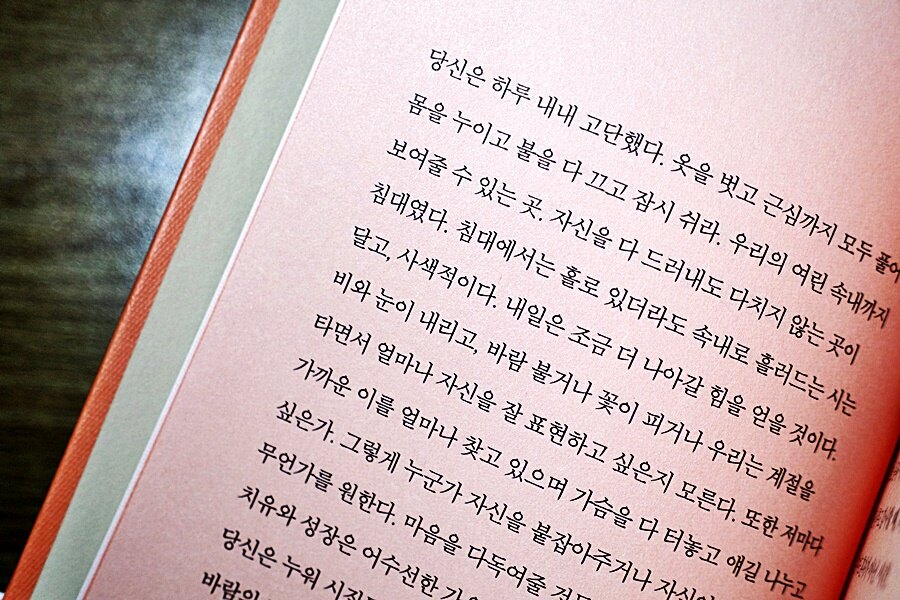 당신은 하루 내내 고단했다. 옷을 벗고 근심까지 모두 풀어
몸을 누이고 불을 다 끄고 잠시 쉬라. 우리의 여린 속내까지
보여줄 수 있는 곳. 자신을 다 드러내도 다치지 않는 곳이
침대였다. 침대에서는 홀로 있더라도 속내로 흘러드는 시는
달고, 사색적이다. 내일은 조금 더 나아갈 힘을 얻을 것이다.
비와 눈이 내리고, 바람 불거나 꽃이 피거나 우리는 계절을
타면서 얼마나 자신을 잘 표현하고 싶은지 모른다. 또한 저마다
가까운 이를 얼마나 찾고 있으며 가슴을 다 터놓고 얘길 나누고
싶은가. 그렇게 누군가 자신을 붙잡아주거나
무언가를 원한다. 마음을 다독여줄
치유와 성장은 어수선한
당신은 누워
바람의